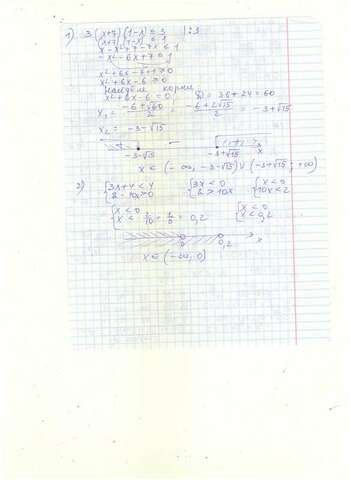 1) 3(x+7)(1-x) ≤ 3 |:3
(x+7)(1-x) ≤ 1
x - x² + 7 - 7x ≤ 1
-x² - 6x + 7 ≤ 1
x² + 6x - 6 ≥ 0
найдем корни
x² + 6x - 6 = 0; D = 36 + 24 = 60
x₁ = (-6 + √60)/2 = (-6 + 2√15)/2 = -3 + √15
x₂ = -3 - √15
-3-√15 -3+√15 x
x ∈ (-∞, -3-√15) ∪ (-3+√15; +∞)
2) {3x+4 < 4 {3x < 0 {x < 0
{2 - 10x > 0 {2 > 10x {10x < 2
{x < 0 {x < 0
{x < 2/10 = 1/5 = 0,2 {x < 0,2
0 0,2 x
x ∈ (-∞, 0)